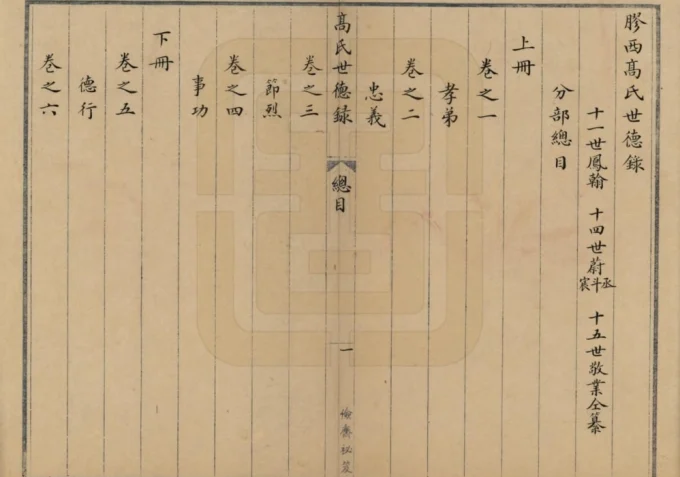 膠西高氏世德錄
十一世鳳翰 十四世蔚丞 斗宸 十五世敬業仝纂
分部總目
上冊
卷之一
孝弟
卷之二
忠義
高氏世德錄 總目 一
卷之三
節烈
卷之四
事功
下冊
卷之五
德行
卷之六